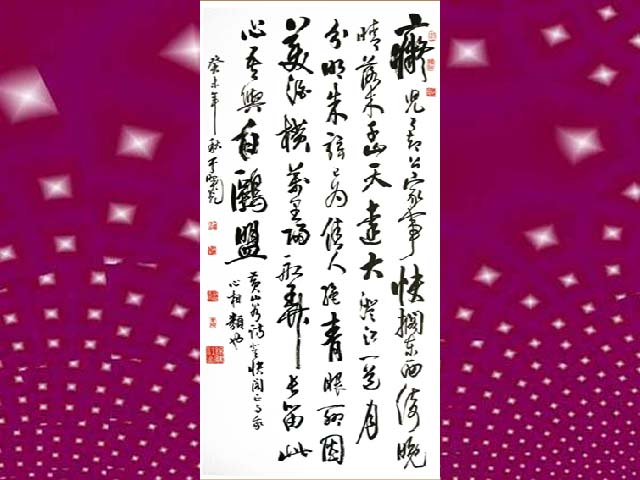 癡兒了却公家事快閣東西倚晚
晴落木千山天遠大澄江一道月
分明朱弦已為佳人絕青眼聊因
美酒橫萬里歸船弄長笛此
心吾與白鷗盟
黄山谷詩登快閣
心相類也
癸未年秋于